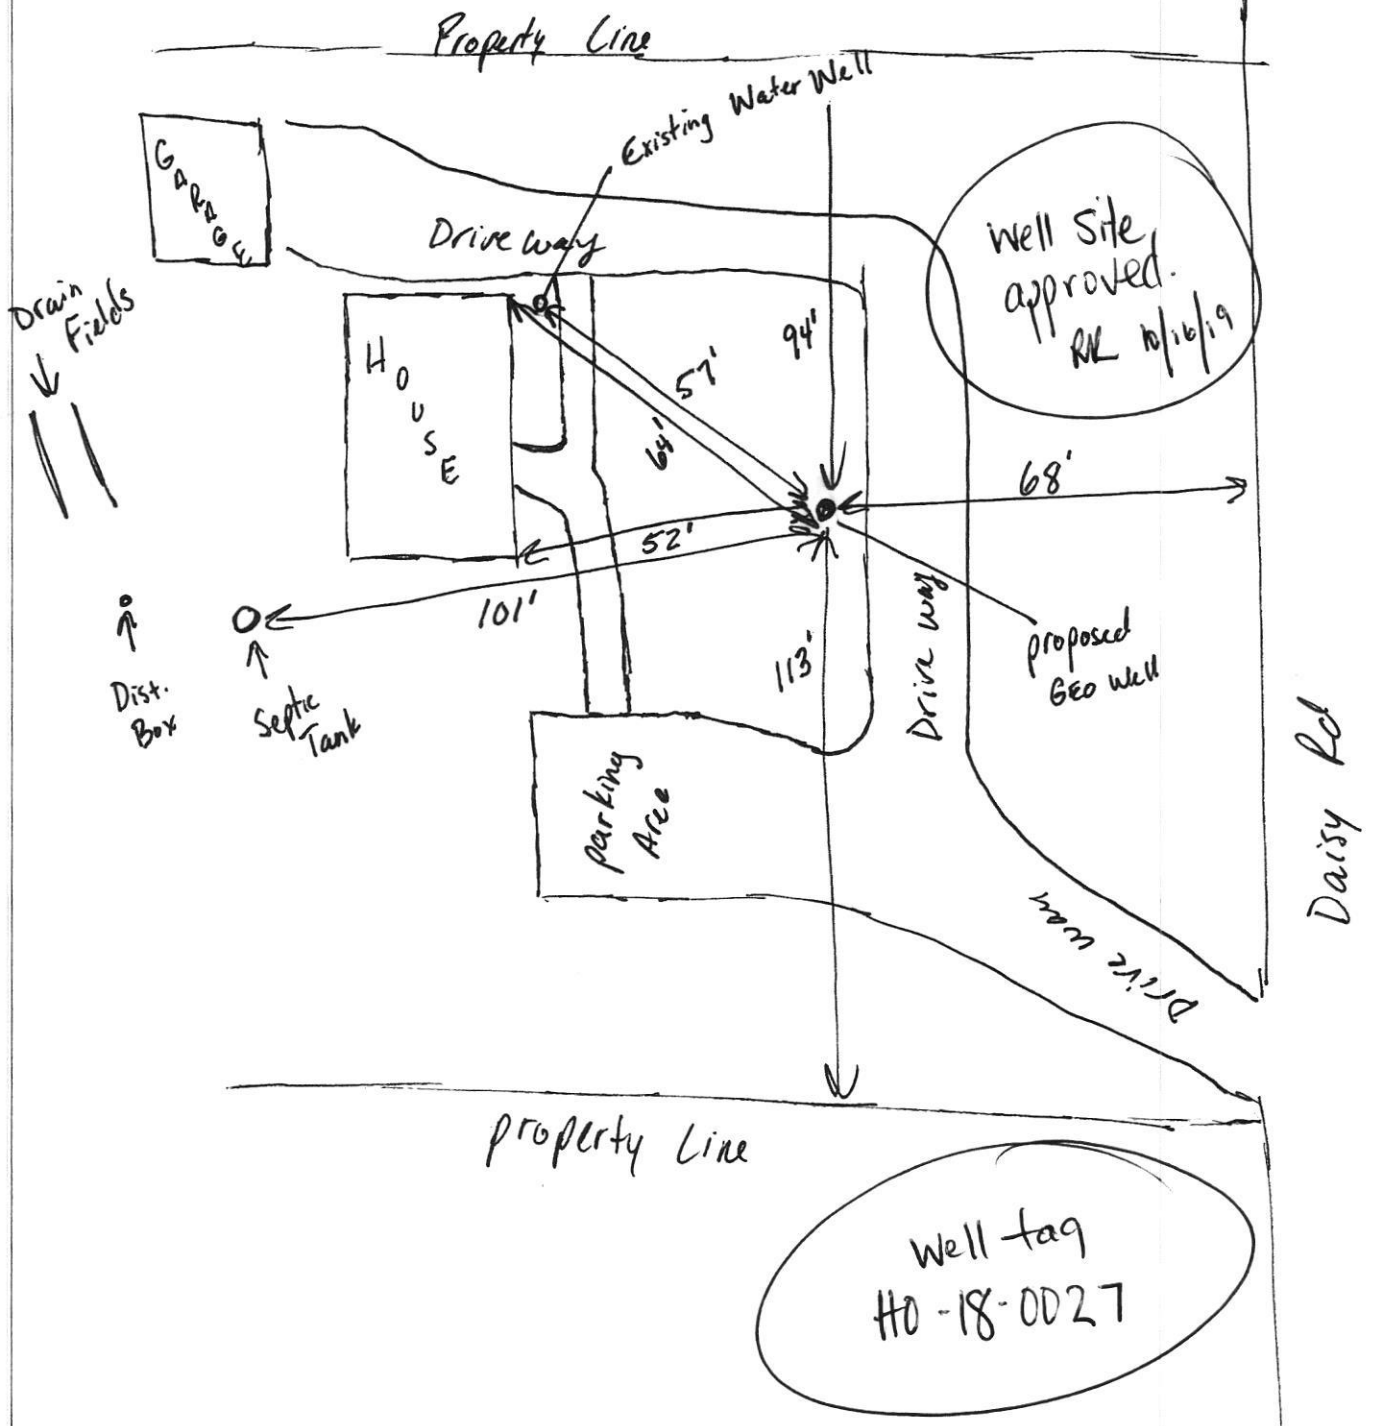 Property Line
Existing Water Well
GARAGE
Driveway
Well Site
approved.
RR 10/16/19
Drain
Fields
HOUSE
94'
57'
64'
68'
52'
101'
113'
Drive way
proposed
GEO Well
Dist.
Box
Septic
Tank
parking
Area
Drive way
Daisy Rd
property Line
Well tag
HO-18-0027